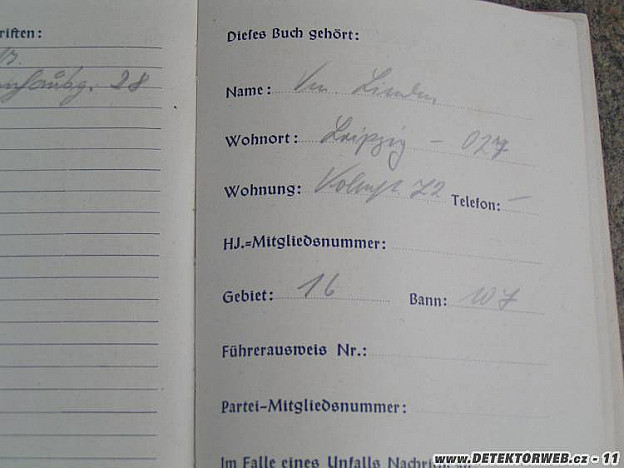 riften:
28
Dieses Buch gehört:
Name: Linden
Wohnort: Leipzig - O27
Wohnung: 72 Telefon: -
HJ.=Mitgliedsnummer:
Gebiet: 16 Bann: 107
Führerausweis Nr.:
Partei-Mitgliedsnummer:
Im Falle eines Unfalls
www.DETEKTORWEB.cz - 11